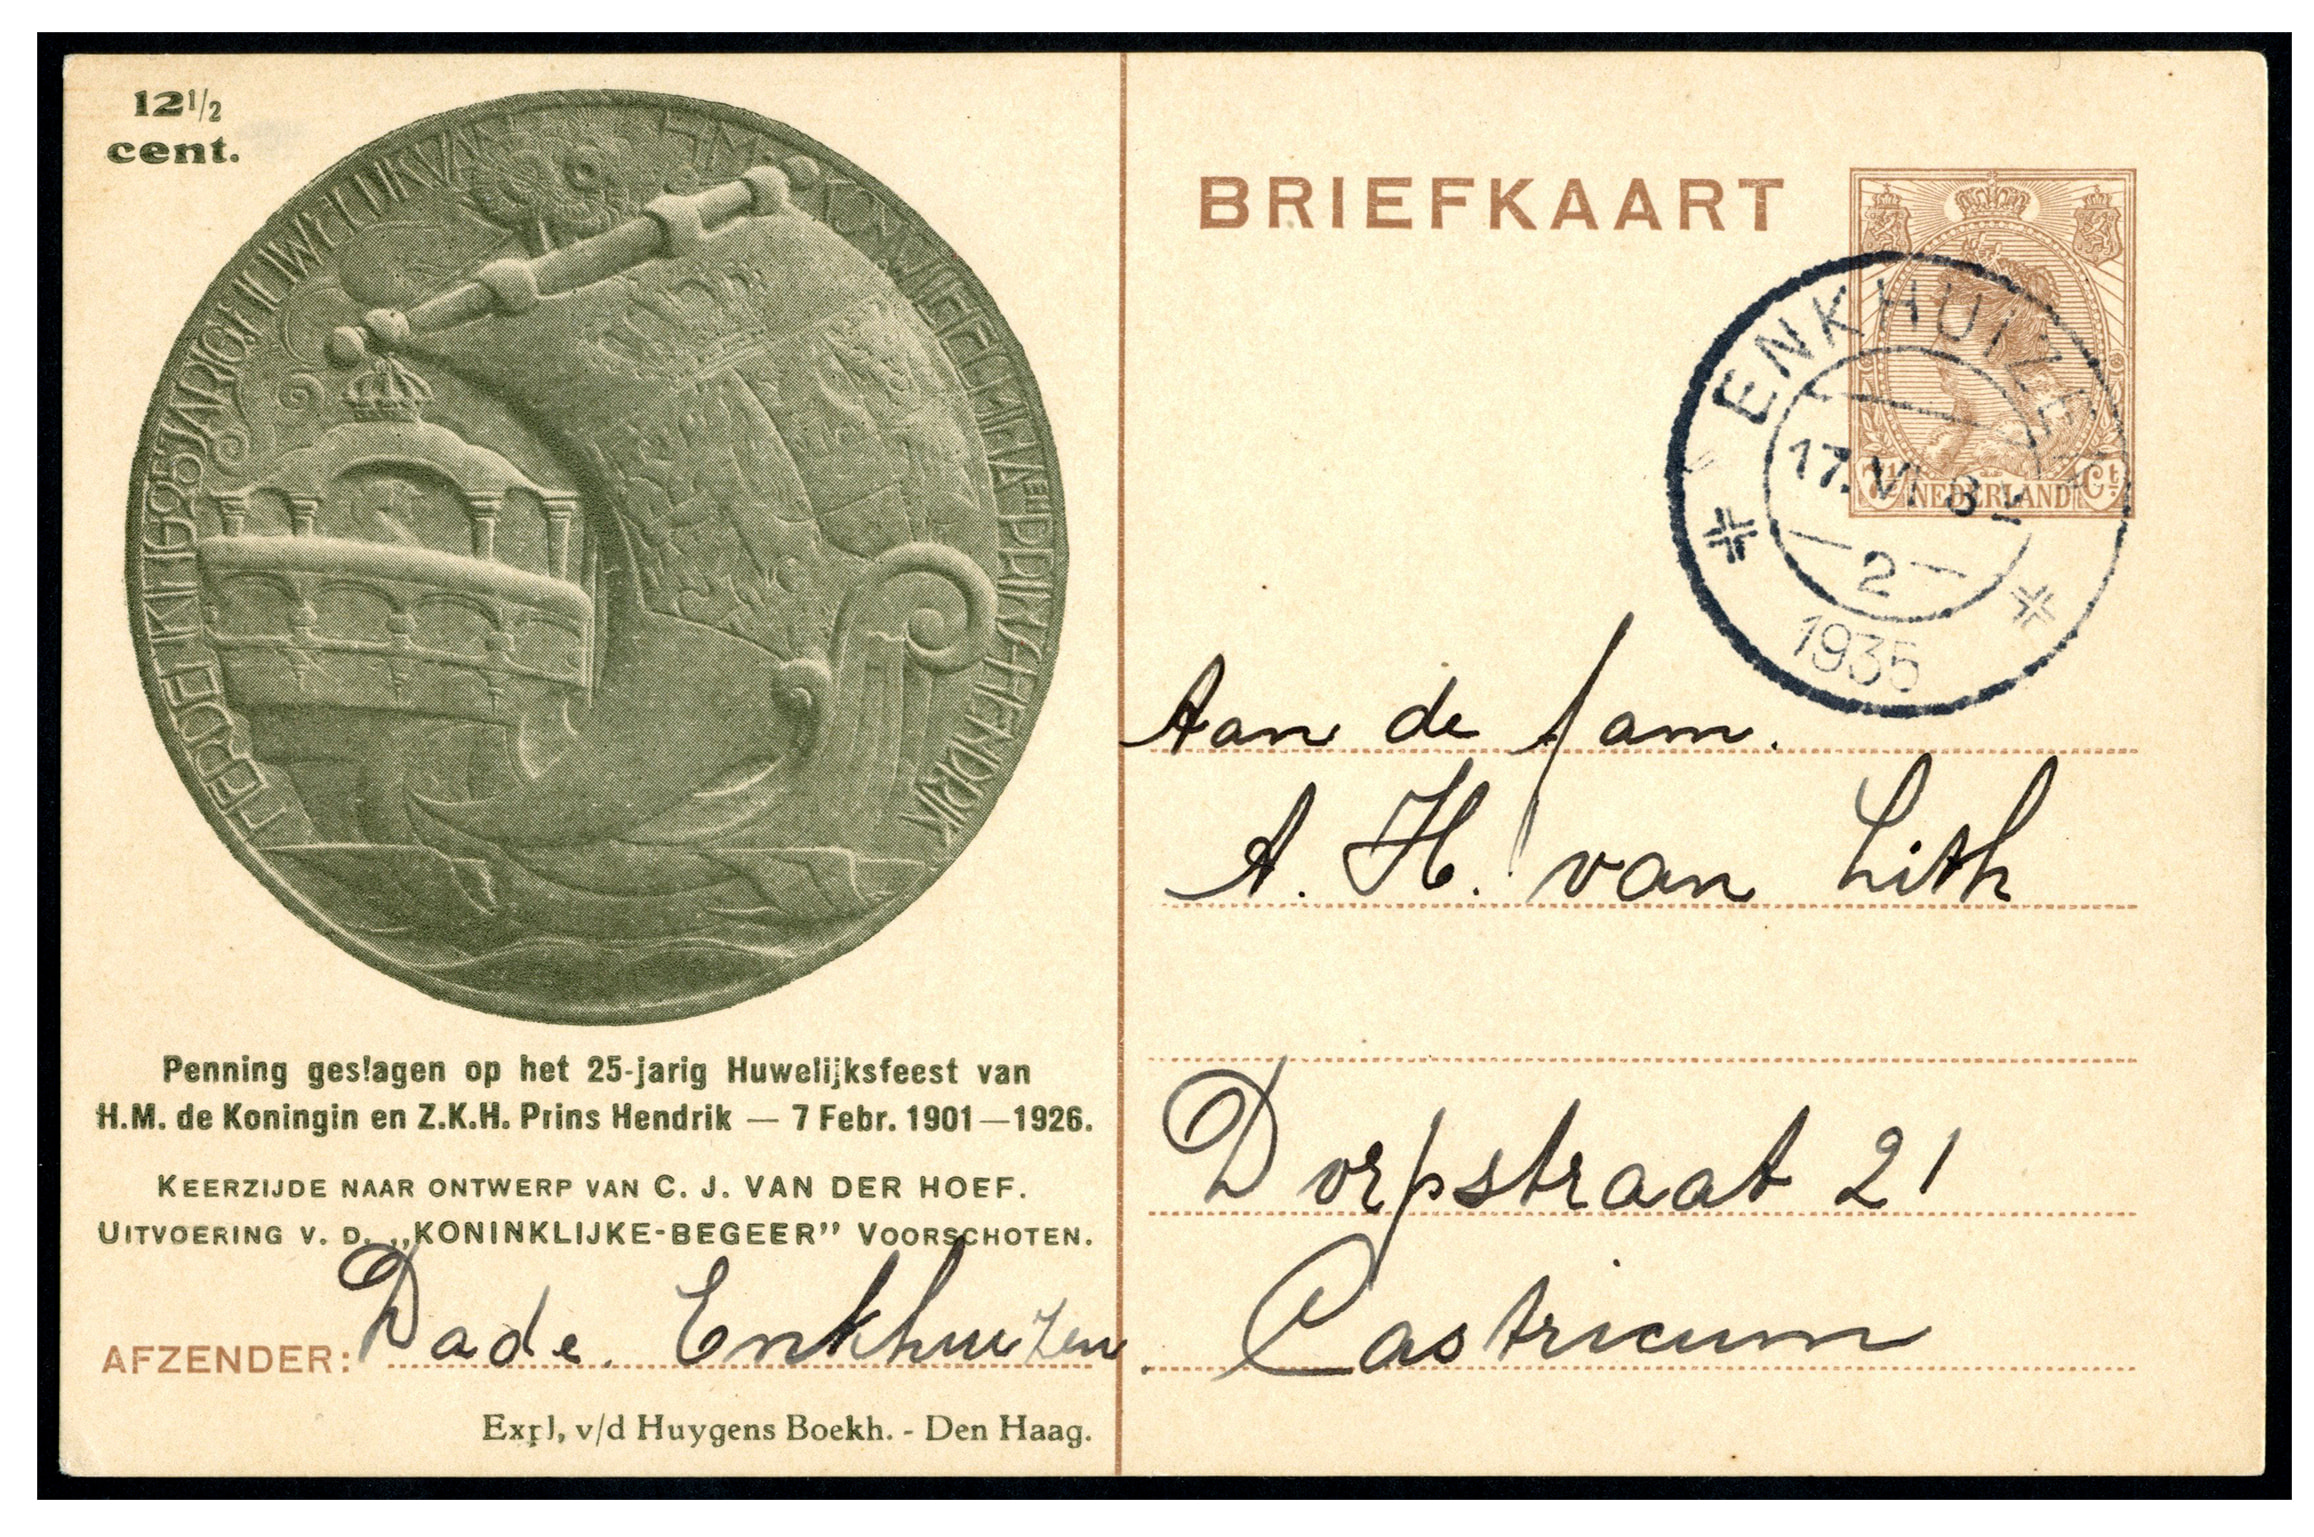 12 1/2
cent.
Penning geslagen op het 25-jarig Huwelijksfeest van
H.M. de Koningin en Z.K.H. Prins Hendrik — 7 Febr. 1901—1926.
KEERZIJDE NAAR ONTWERP VAN C. J. VAN DER HOEF.
UITVOERING V. D. „KONINKLIJKE-BEGEER” VOORSCHOTEN.
AFZENDER: Dade. Enkhuizen.
Expl, v/d Huygens Boekh. - Den Haag.
BRIEFKAART
7½ NEDERLAND Ct
ENKHUIZEN
17.VI 8
2
1935
Aan de fam.
A. H. van Lith
Dorpstraat 21
Castricum